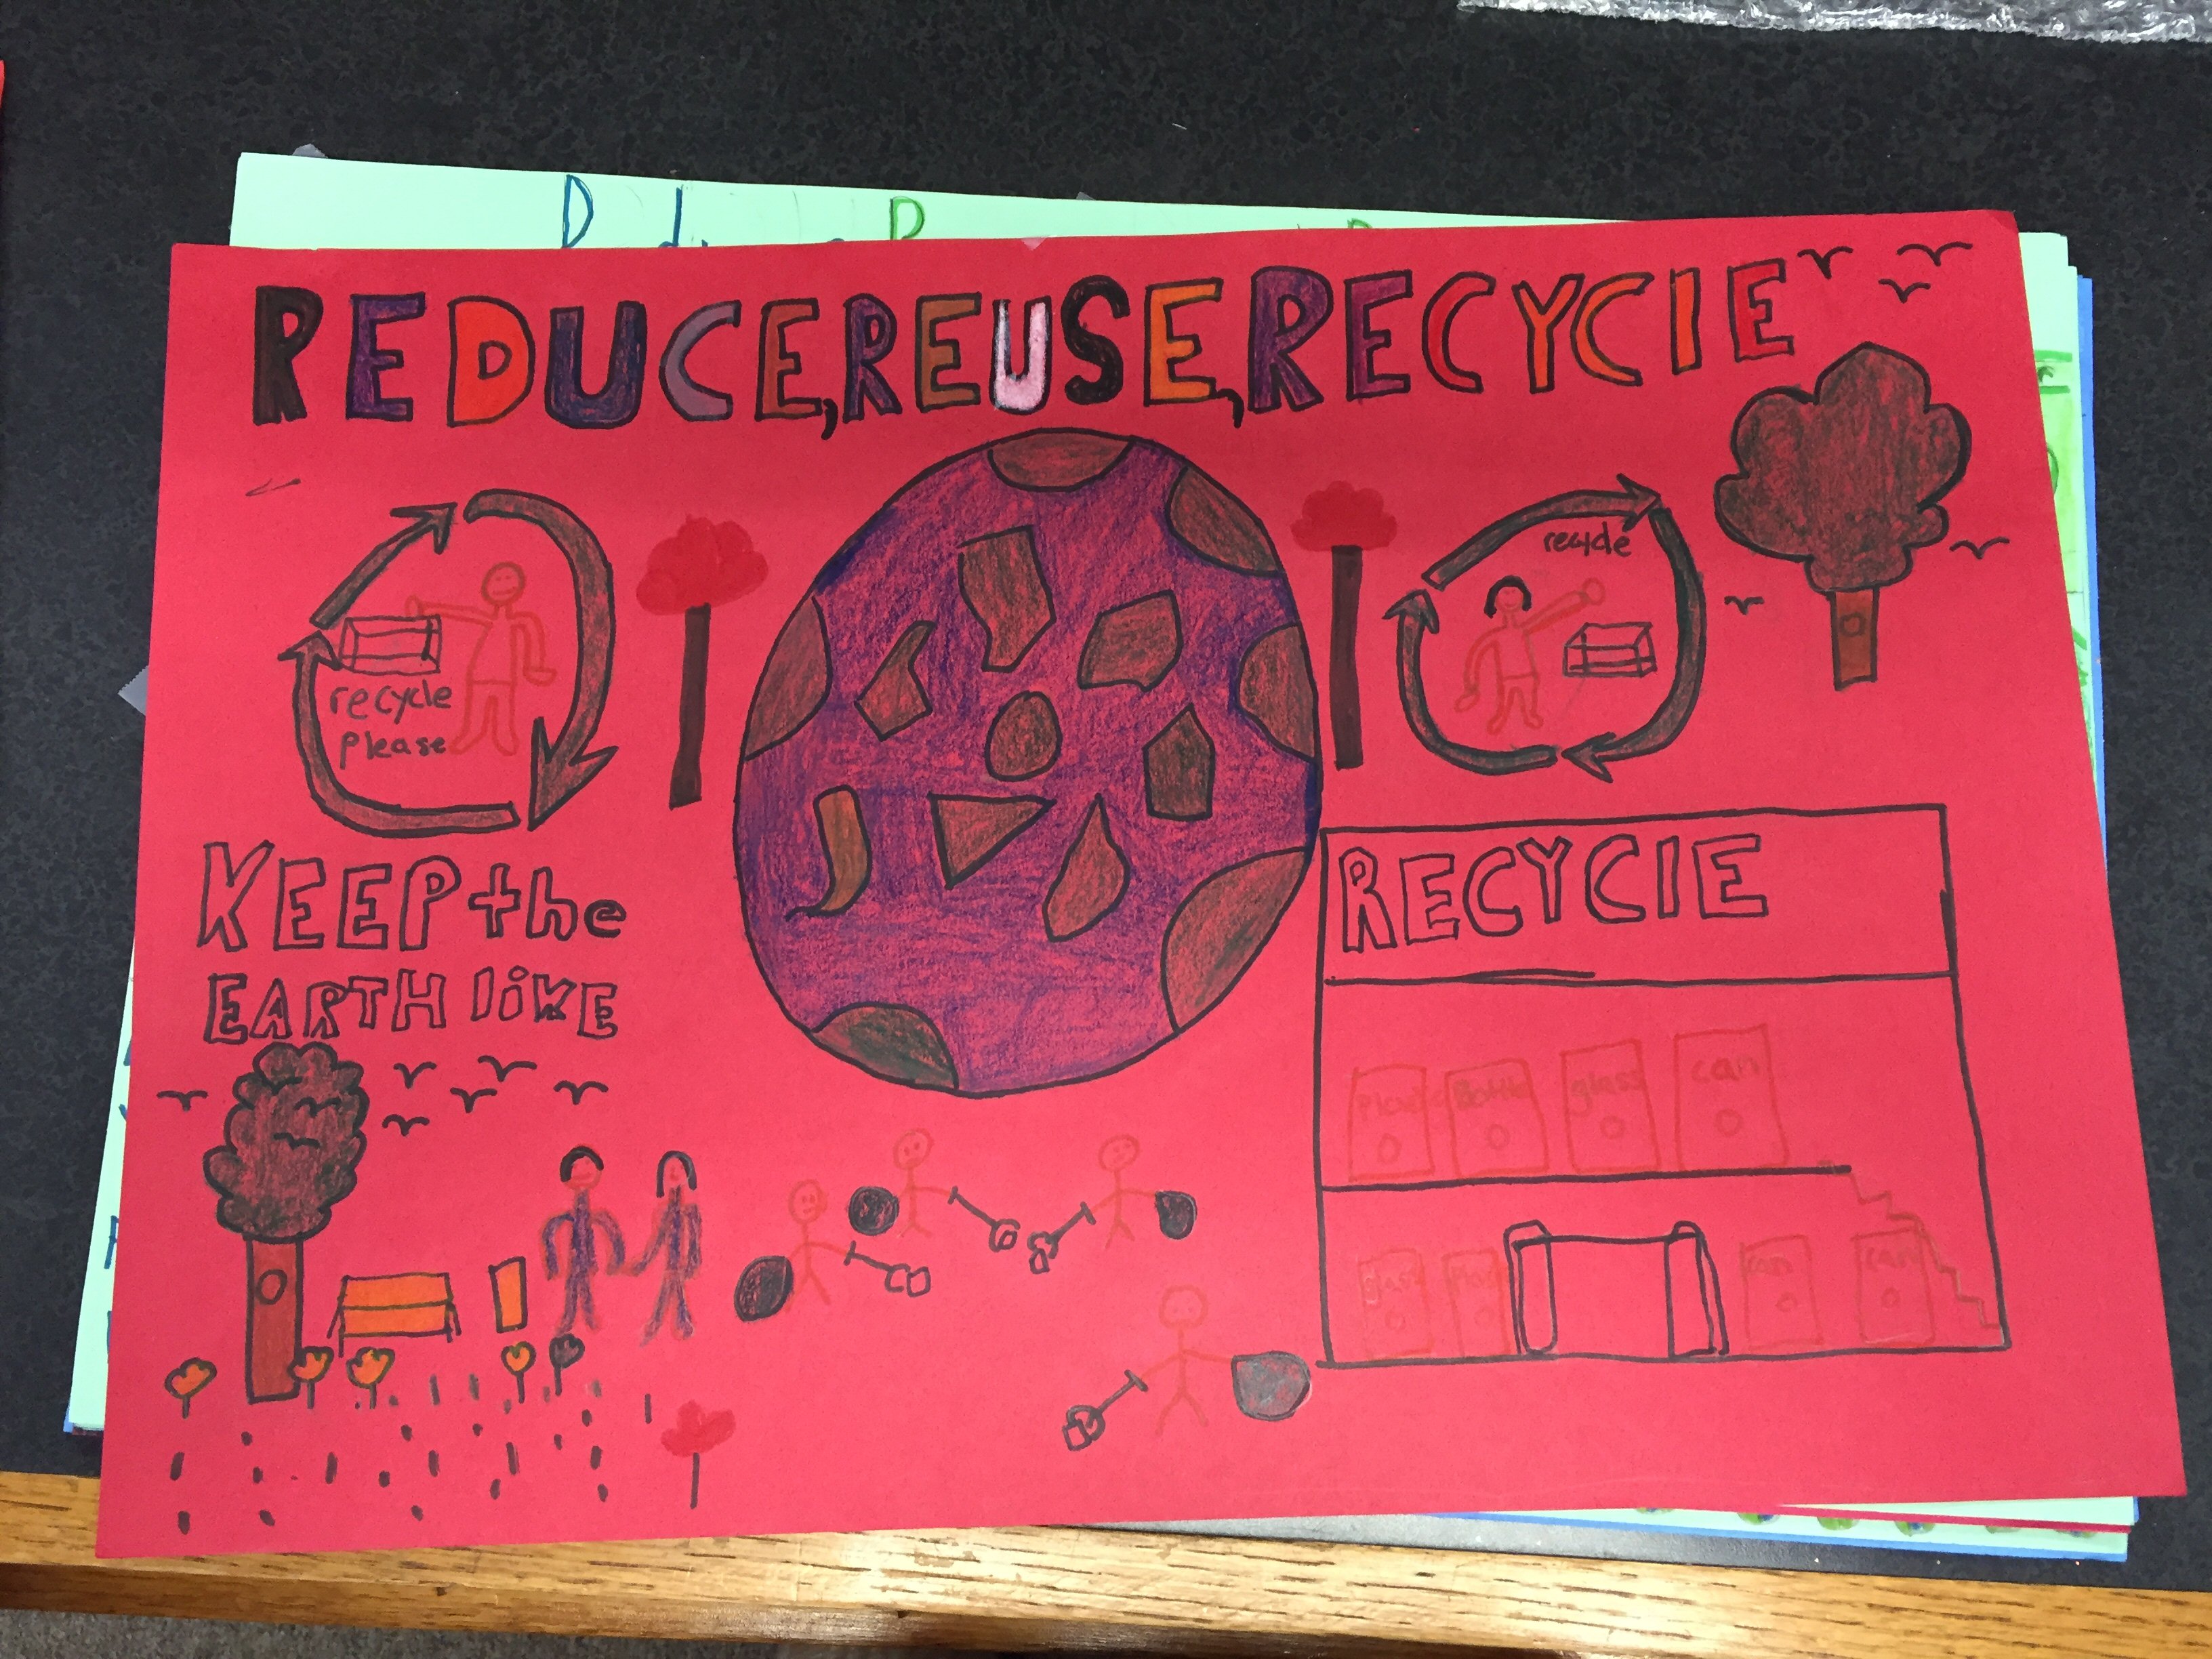 REDUCE, REUSE, RECYCIE
recycle
please
recycle
KEEP the
EARTH liKE
RECYCIE
Bottle
glass
can
can
can